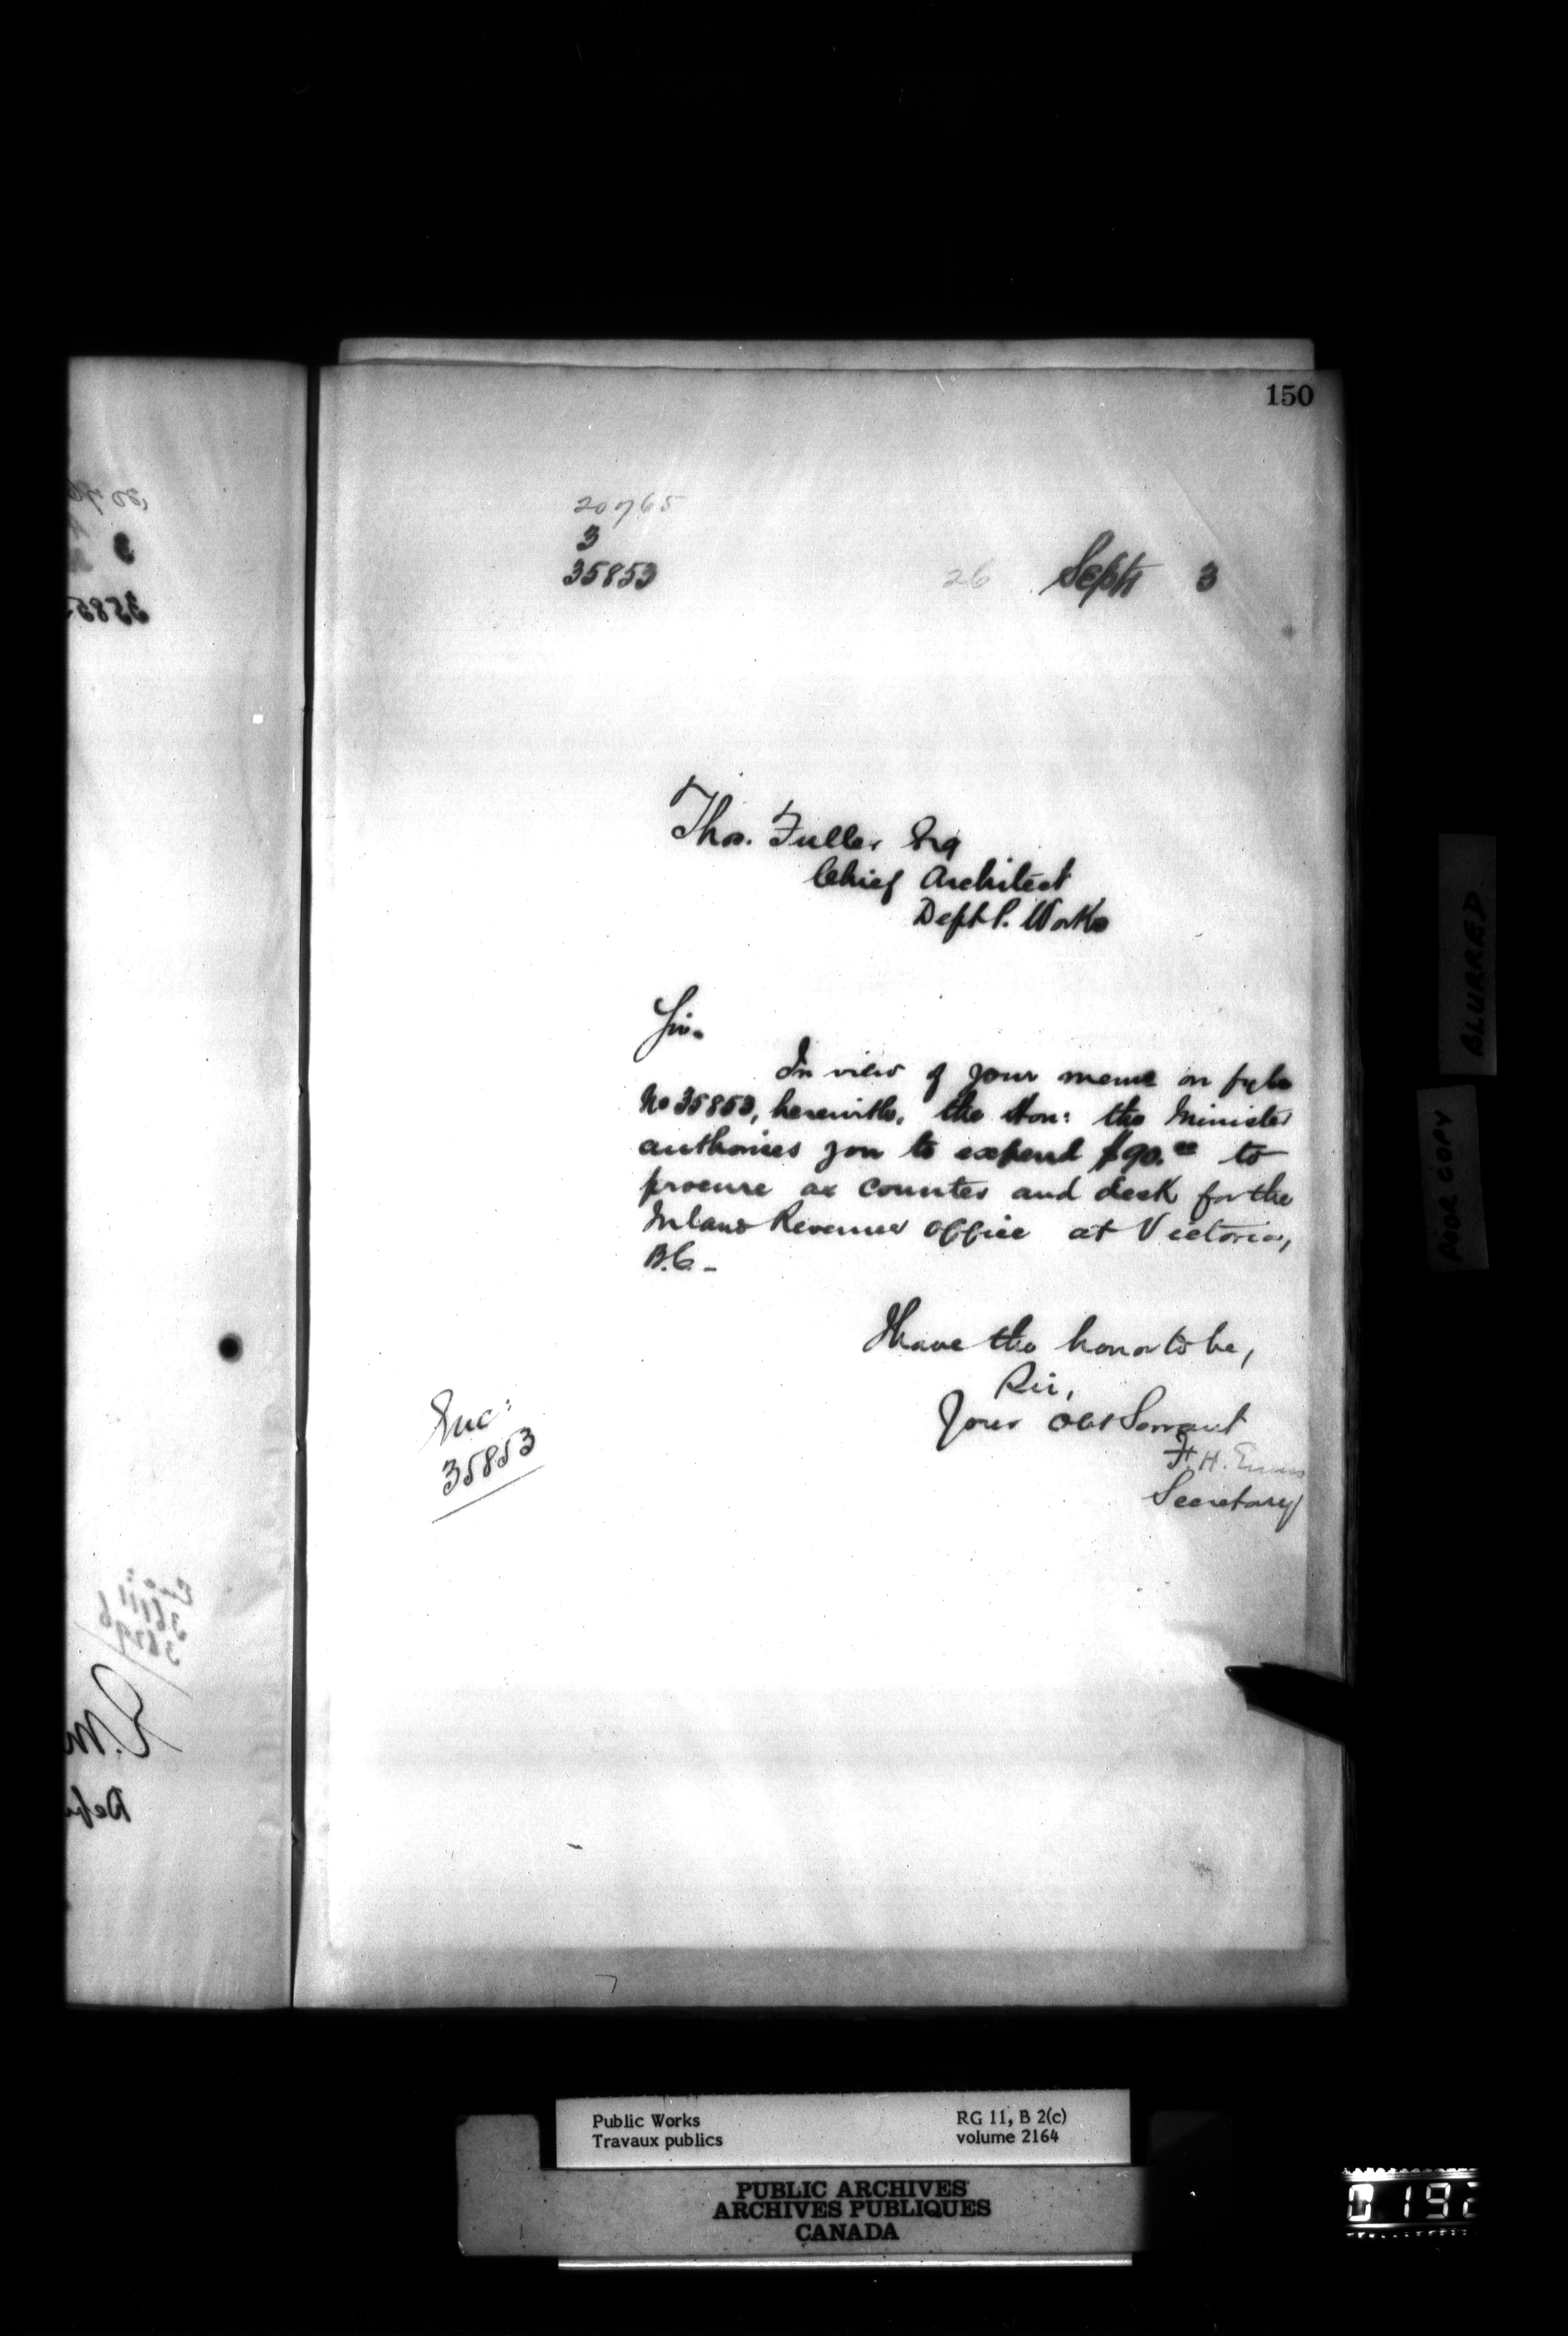 150
20765
3
35853
26 Septr 3
Thos. Fuller Esq
Chief Architect
Dept P. Works
Sir.
In view of your memo on fyle
No 35853, herewith, the Hon: the Minister
authorises you to expend $90.00 to
procure a counter and desk for the
Inland Revenue Office at Victoria,
B.C. -
I have the honor to be,
Sir,
Your Obt Servant
F. H. Ennis
Secretary
Enc:
35853
BLURRED
POOR COPY
Public Works
Travaux publics
RG 11, B 2(c)
volume 2164
PUBLIC ARCHIVES
ARCHIVES PUBLIQUES
CANADA